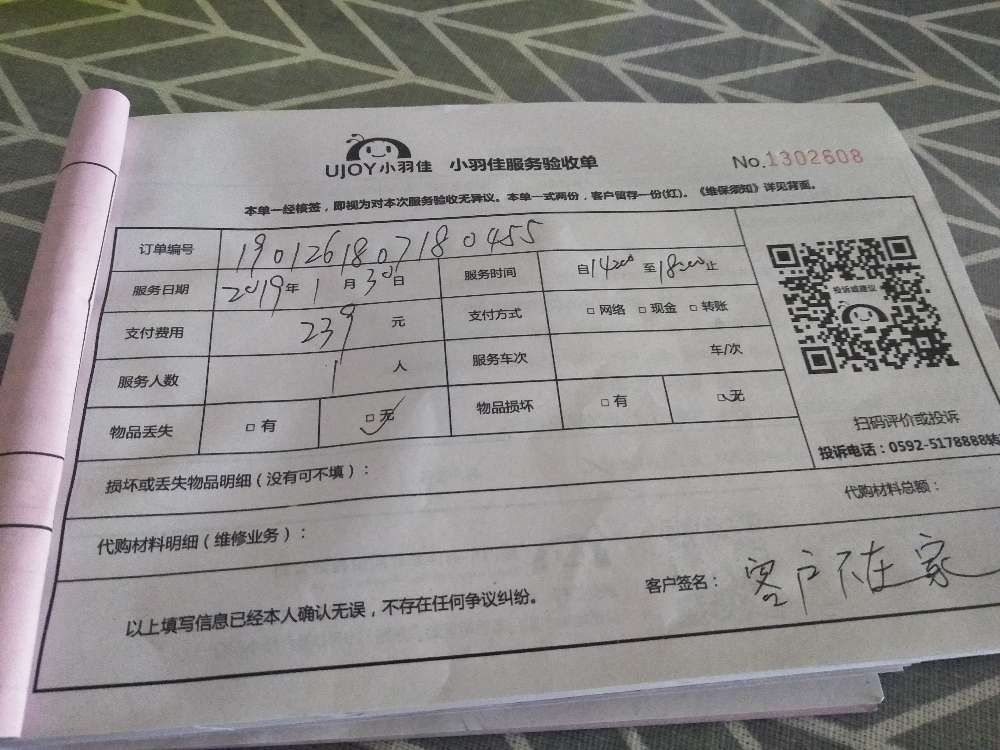 UJOY小羽佳 小羽佳服务验收单 No.1302608
本单一经核签，即视为对本次服务验收无异议。本单一式两份，客户留存一份(红)。《维保须知》详见背面。
订单编号 1901261807180455
服务日期 2019年1月30日 服务时间 自14:00至18:00止
支付费用 239元 支付方式 □网络 □现金 □转账
服务人数 1人 服务车次 车/次
物品丢失 □有 □无 物品损坏 □有 □无
投诉或建议
扫码评价或投诉
投诉电话：0592-5178888转
损坏或丢失物品明细（没有可不填）：
代购材料总额：
代购材料明细（维修业务）：
以上填写信息已经本人确认无误，不存在任何争议纠纷。
客户签名：客户不在家